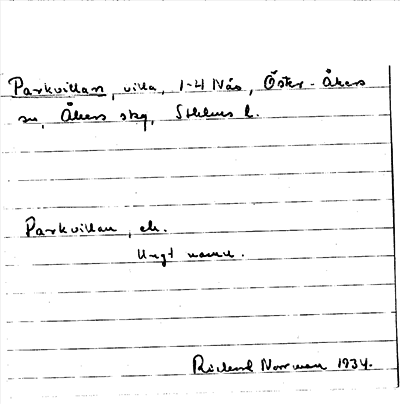 Parkvillan, villa, 1-4 Näs, Öster-Åkers
sn, Åkers skg, Sthlms l.
Parkvillan, eb.
Ungt namn.
Rickard Norrman 1934.